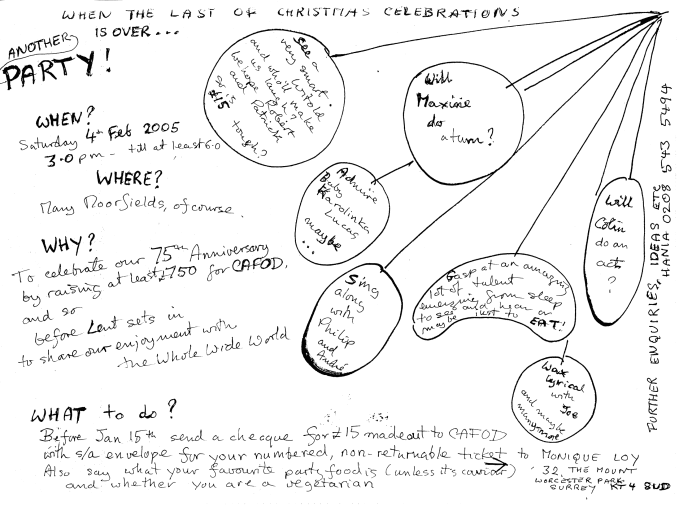 WHEN THE LAST OF CHRISTMAS CELEBRATIONS
IS OVER...
ANOTHER
PARTY!
WHEN?
Saturday 4th Feb 2005
3.0 pm - till at least 6.0
WHERE?
Mary Moorfields, of course.
WHY?
To celebrate our 75th Anniversary
by raising at least £750 for CAFOD,
and so
before Lent sets in
to share our enjoyment with
the Whole Wide World
See a
very smart
Witold
and who'll make
us laugh?
We hope Robert
and Patrick
so is
£15
tough?
Will
Maxine
do
a turn?
Admire
Baby
Karolinka
Lucas,
maybe
...
Sing
along
with
Philip
and
André
Gasp at an amazing
lot of talent
emerging from sleep
to see and hear or
maybe just to EAT!
Will
Colin
do an
act
?
Wax
Lyrical
with
Joe
and maybe
many more
FURTHER ENQUIRIES, IDEAS ETC
HANIA 0208 543 5494
WHAT to do?
Before Jan 15th send a checque for £15 made out to CAFOD
with s/a envelope for your numbered, non-returnable ticket to MONIQUE LOY
Also say what your favourite party food is (unless its caviar)
and whether you are a vegetarian
32, THE MOUNT
WORCESTER PARK
SURREY KT4 8UD